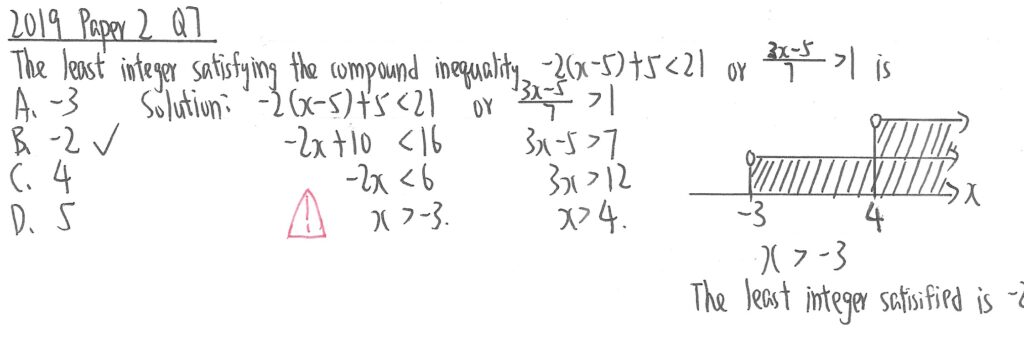 2019 Paper 2 Q7
The least integer satisfying the compound inequality -2(x-5)+5<21 or (3x-5)/7 >1 is
A. -3 Solution: -2(x-5)+5<21 or (3x-5)/7 >1
B. -2 ✓ -2x+10 <16 3x-5>7
C. 4 -2x<6 3x>12
D. 5 ! x>-3. x>4.
-3 4 x
x > -3
The least integer satisified is -2